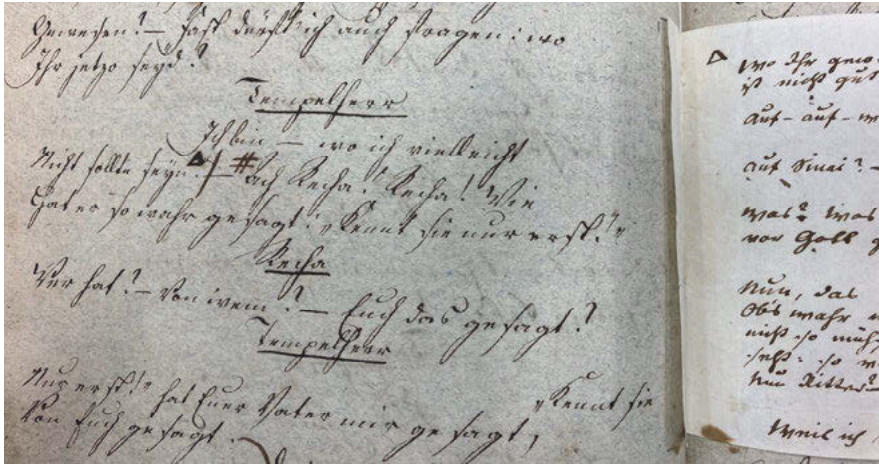 Gewesen? — Fast dürft' ich auch fragen: wo
Ihr jetzo seyd?
Tempelherr
Ich bin — wo ich vielleicht
Nicht sollte seyn. — # Ach Recha! Recha! Wie
Hat er so wahr gesagt: „Kennt sie nur erst!"
Recha
Wer hat? — Von wem? — Euch das gesagt?
Tempelherr
„Kennt sie
Nur erst!" hat Euer Vater mir gesagt,
Von Euch gesagt.
wo Ihr
ist nicht gut
auf — auf —
auf Sinai? —
was? was
vor Gott
Nun, das
Obs wahr
nicht so müh
so
Weil ich